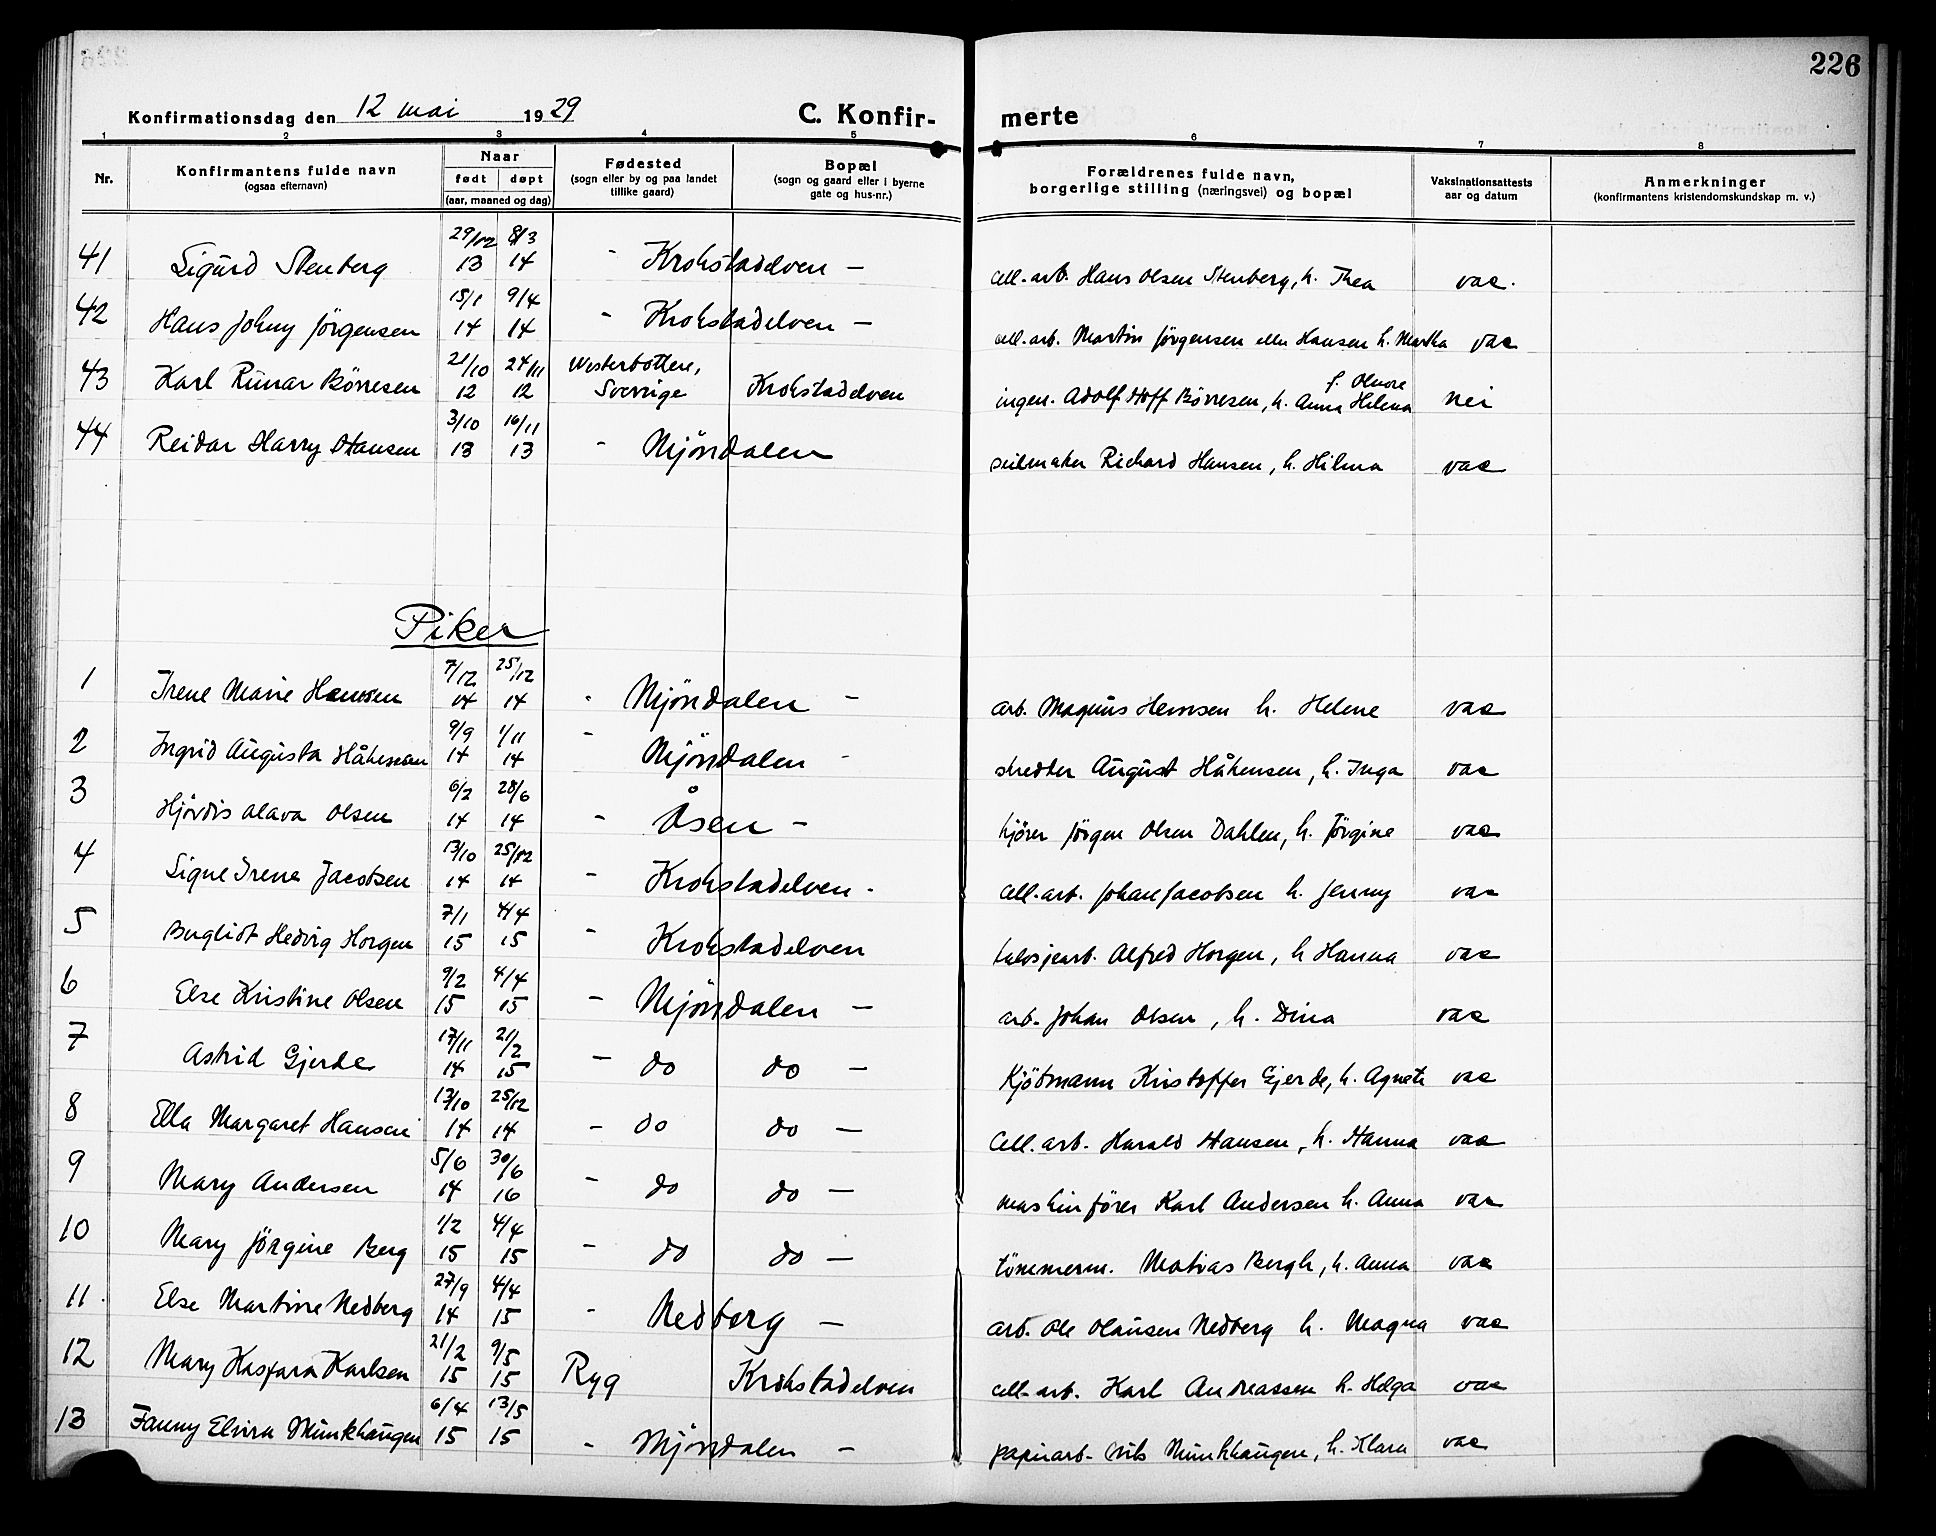 226
Konfirmationsdag den 12 mai 1929 C. Konfir- merte
1 2 3 4 5 6 7 8
Nr. Konfirmantens fulde navn (ogsaa efternavn) Naar født døpt (aar, maaned og dag) Fødested (sogn eller by og paa landet tillike gaard) Bopæl (sogn og gaard eller i byerne gate og hus-nr.) Forældrenes fulde navn, borgerlige stilling (næringsvei) og bopæl Vaksinationsattests aar og datum Anmerkninger (konfirmantens kristendomskundskap m. v.)
41 Sigurd Stenberg 29/12 13 8/3 14 - Krokstadelven - cell-arb. Hans Olsen Stenberg, h. Thea vac.
42 Hans Johny Jörgensen 15/1 14 9/4 14 - Krokstadelven - cell-arb. Martin Jörgensen eller Hansen h. Martha vac
43 Karl Runar Börresen 21/10 12 24/11 12 Westerbotten, Sverrige Krokstadelven ingen. Adolf Hoff Börresen, h. Anna Helena nei
44 Reidar Harry Hansen 3/10 13 16/11 13 - Mjöndalen seilmaker Richard Hansen, h. Hilma vac
Piker
1 Irene Marie Hansen 7/12 14 25/12 14 - Mjöndalen - arb. Magnus h. Helene vac
2 Ingrid Augusta Håkensen 9/9 14 1/11 14 - Mjöndalen - skredder August Håkensen, h. Inga vac
3 Hjördis Olava Olsen 6/2 14 28/6 14 - Åsen - kjörer Jörgen Olsen Dahlen, h. Jörgine vac
4 Signe Irene Jacobsen 13/10 14 25/12 14 - Krokstadelven - cell-arb. Johan Jacobsen h. Jenny vac
5 Bergliot Hedvig Horgen 7/1 15 4/4 15 - Krokstadelven Alfred Horgen, h Hanna vac
6 Else Kristine Olsen 9/2 15 4/4 15 - Mjöndalen - arb. Johan Olsen, h. Dina vac
7 Astrid Gjerde 17/11 14 21/2 15 - do do - Kjötmann Kristoffer Gjerde, h. Agnete vac
8 Ella Margaret Hansen 13/10 14 25/12 14 - do do - Cell. arb. Harald Hansen, h. Hanna vac
9 Mary Andersen 5/6 14 30/6 16 - do do - maskinförer Karl Andersen h. Anna vac
10 Mary Jörgine Berg 1/2 15 4/4 15 - do do - tömmerm. Matias Bergh, h. Anna vac
11. Else Martine Nedberg 27/9 14 4/4 15 - Nedberg - arb. Ole Olausen Nedberg h. Magna vac
12 Mary Kaspara Karlsen 21/2 15 9/5 15 Ryg Krokstadelven cell-arb. Karl Andreassen h. Helga vac
13 Fanny Elvira Munkhaugen 6/4 15 13/5 15 - Mjöndalen - papirarb. Nils Munkhaugen, h. Klara vac